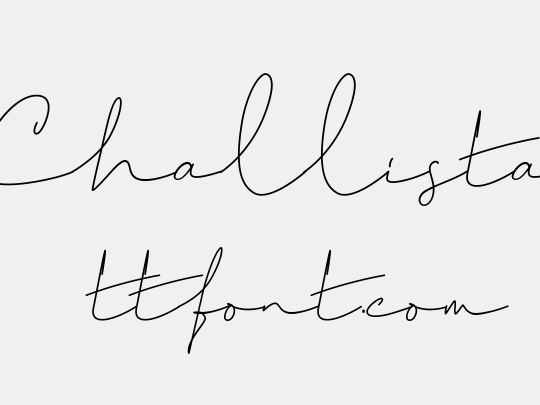 Challista
ttfont.com